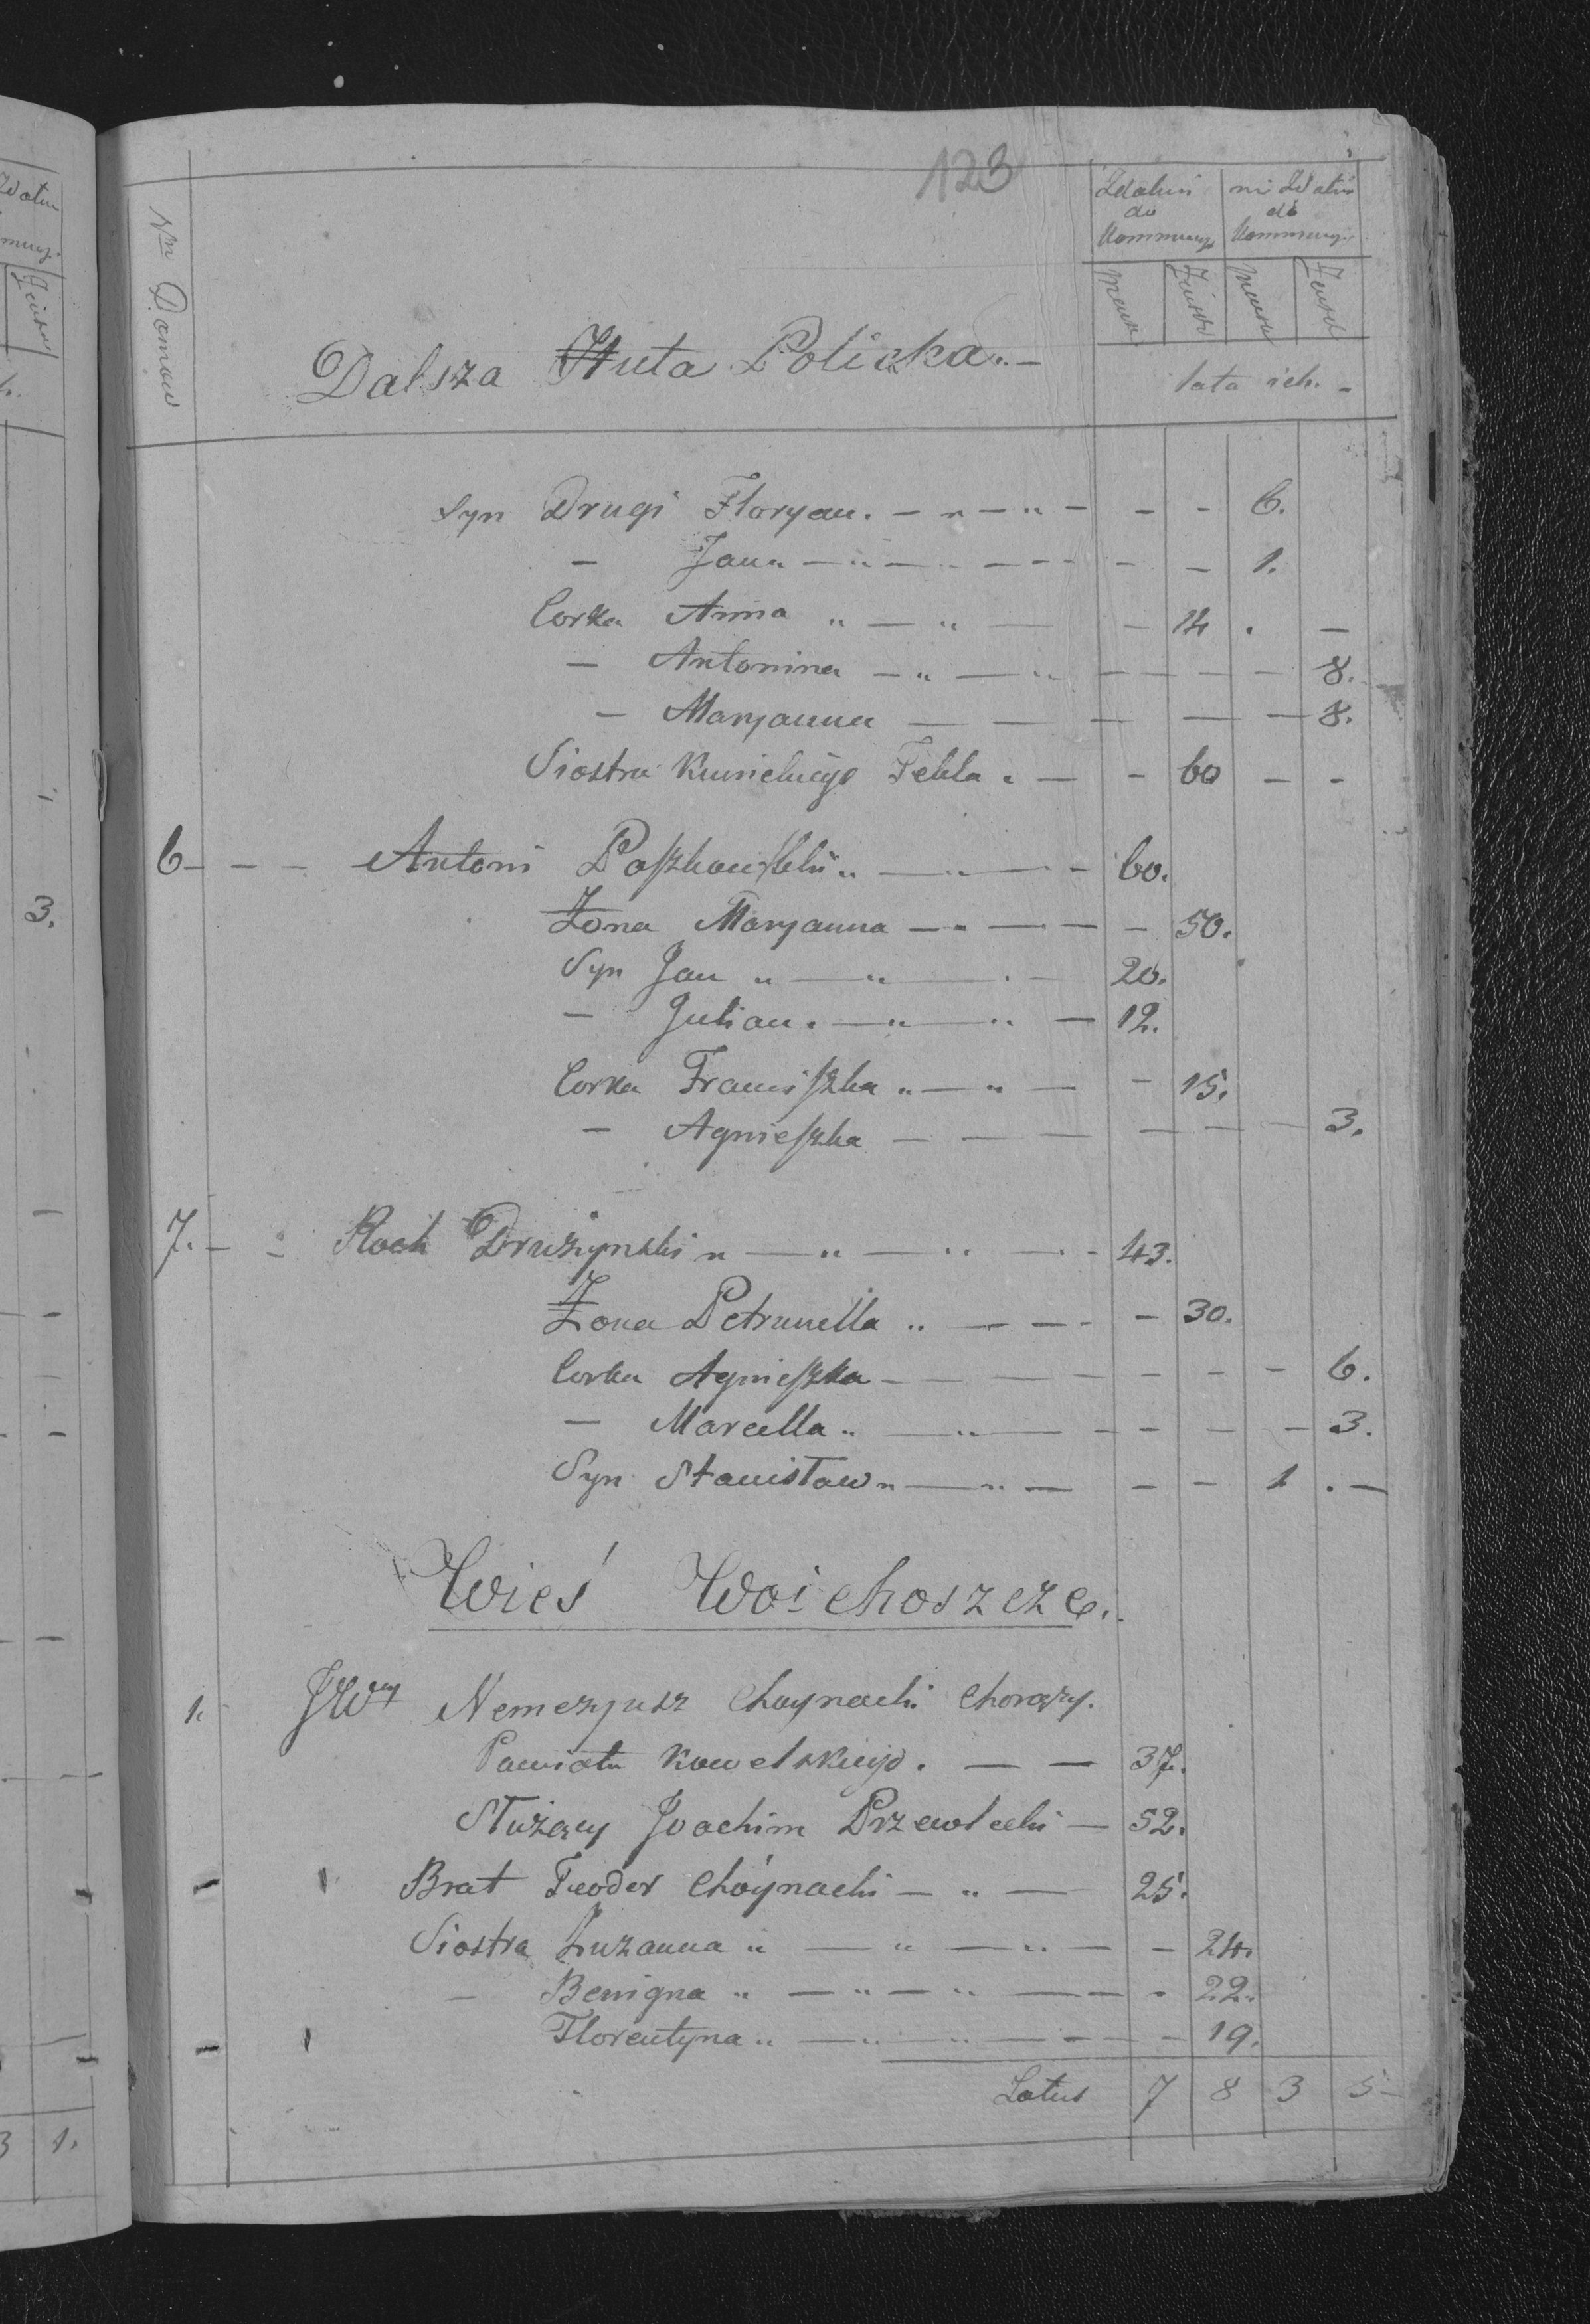 123
Nrn Domow
Zdatni do Kommunyi
nie Zdatni do Kommunyi
Męszcz
Żeńska
Męszcz
Żeńska
Dalsza Huta Policka. —
lata ich. —
Syn Drugi Floryan. — „ — „ — — — 6.
— Jan „ — „ — „ — — — — — 1.
Corka Anna „ — „ — — 14 . —
— Antonina — „ — „ — — — — 8.
— Maryanna — — — — — 8.
Siostra Kunickiego Tekla . — — 60 — —
6 — — — Antoni Paszkowski „ — „ — — 60.
Żona Maryanna — „ — — — 50.
Syn Jan „ — „ — . — 20.
— Julian . — „ — „ — 12.
Corka Franciszka „ — „ — — 15.
— Agnieszka — — — — — — 3.
7. — — Roch Drużynski „ — „ — „ . — 43.
Żona Petrunella „ — — — — 30.
Corka Agnieszka — — — — — — — 6.
— Marcella „ — „ — — — — — 3.
Syn Stanisław „ — „ — — — 1 . —
Wieś Woichoszcze.
1. JWny Nemezyusz Choynacki Chorąży.
Powiatu Kowelskiego . — — 37.
Służący Joachim Przewłocki — 52.
Brat Teodor Chóynacki — „ — 25.
Siostra Zuzanna „ — „ — „ — — 24.
— Benigna „ — „ — „ — — — 22.
Florentyna „ — „ — „ — — — 19.
Latus 7 8 3 5 —